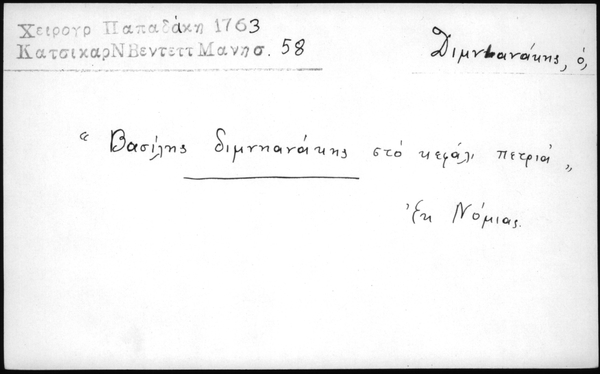 Χειρογρ Παπαδάκη 1763
ΚατσικαρΝΒεντεττΜανησ. 58
Διμνιανάκης, ὁ,
“ Βασίλης διμνιανάκης στὸ κεφάλι πετριά „
Ἐκ Νόμιας.